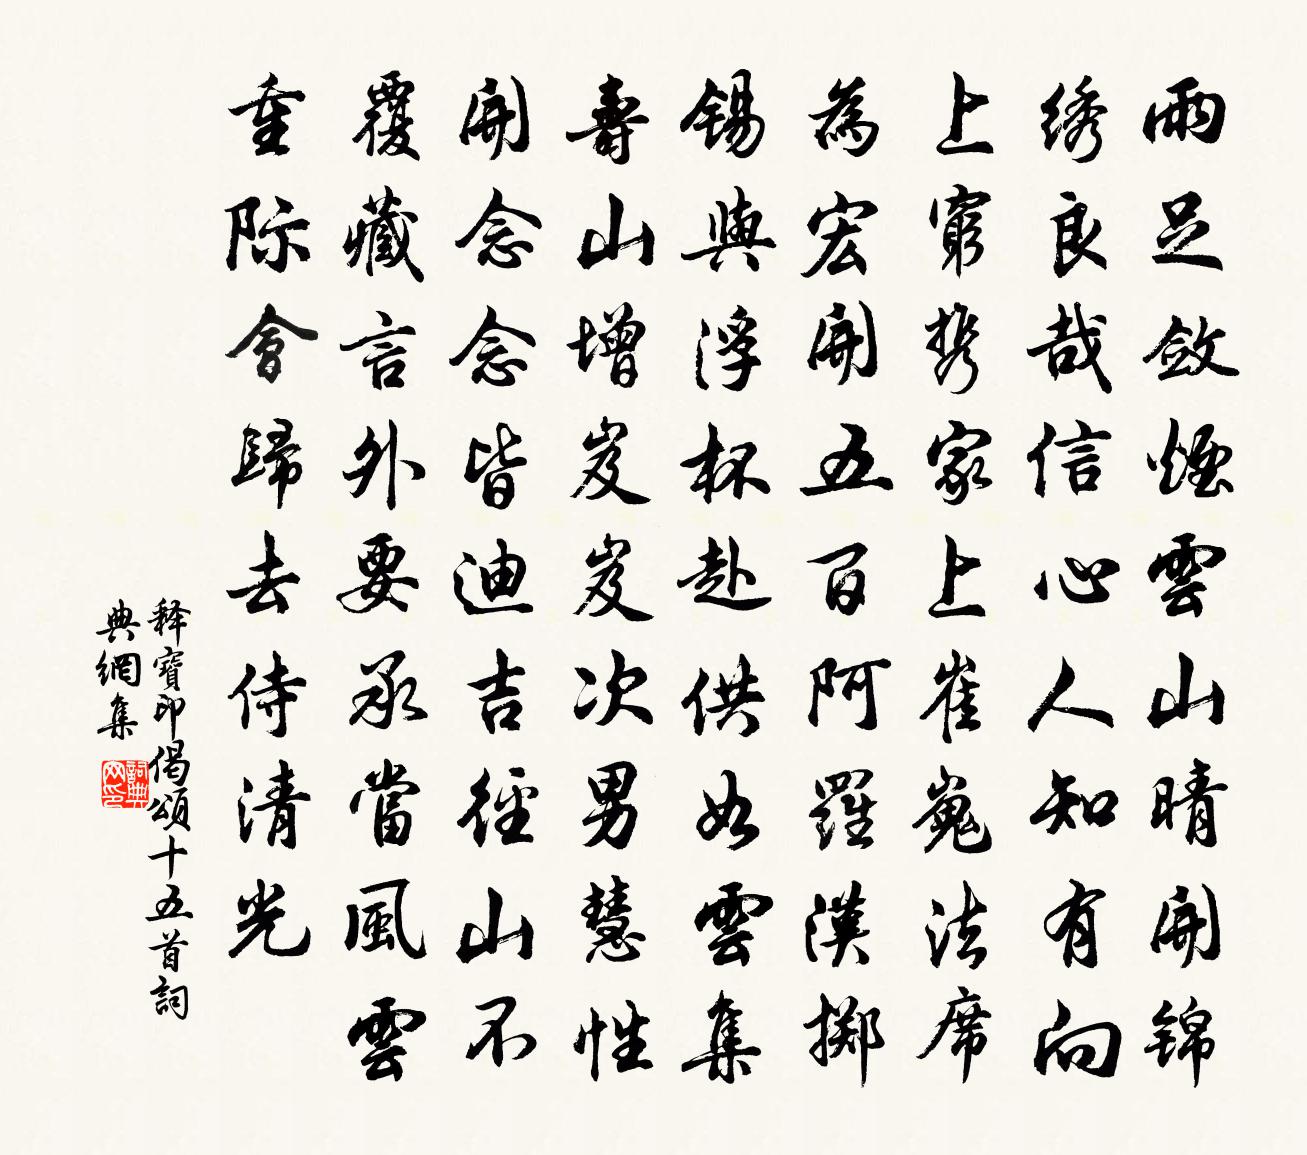 雨足斂煙雲山晴開锦
绣良哉信心人知有向
上窮携家上崔嵬法席
為宏開五百阿羅漢掷
锡與浮杯赴供如雲集
壽山增岌岌次男慧性
開念念皆迪吉徑山不
覆藏言外要承當風雲
重际會歸去侍清光
释寶印偈頌十五首詞
典網集
詞典网印